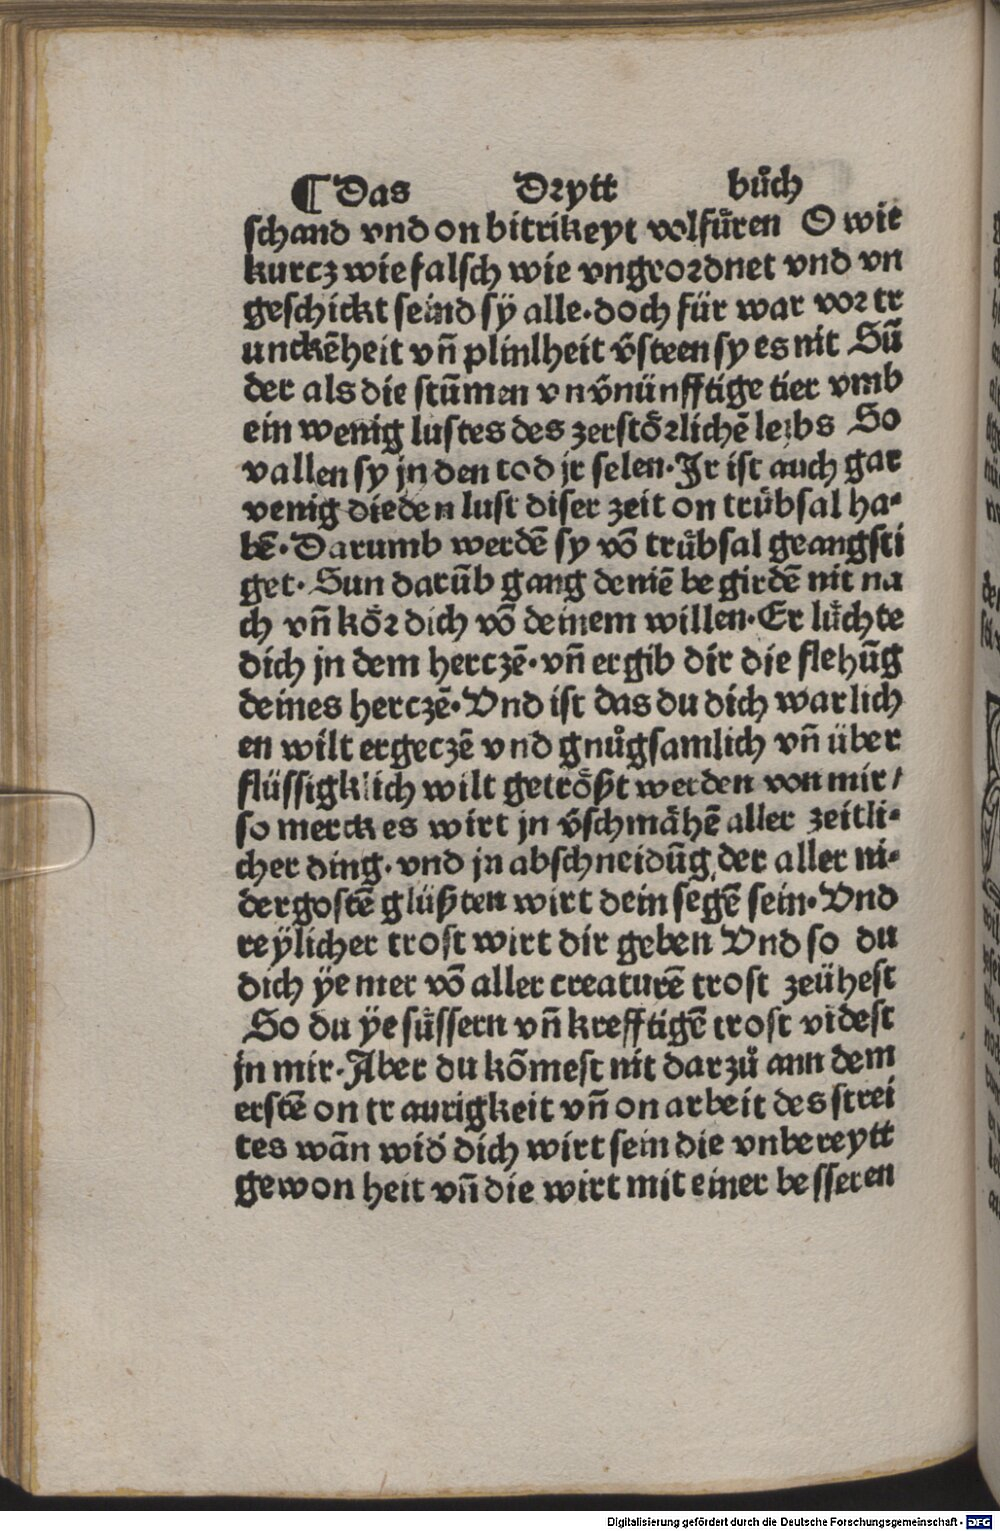 ¶ Das Drytt bůch
schand vnd on bitrikeyt volfůren O wie
kurcz wie falsch wie vngeordnet vnd vn
geschickt seind sÿ alle·doch für war vor tr
unckēheit vñ plinlheit v̄steen sy es nit Sū
der als die stūmen vnv̄nünfftige tier vmb
ein wenig lustes des zerstörlichē leibs So
vallen sy jn den tod jr selen·Jr ist auch gar
venig die den lust diser zeit on trůbsal ha-
bē·Darumb werdē sy vō trůbsal geangsti
get·Sun darūb gang deniē be girdē nit na
ch vñ kör dich vō deinem willen·Er lůchte
dich jn dem herczē·vñ ergib dir die flehūg
deines herczē·Vnd ist das du dich warlich
en wilt ergeczē vnd gnůgsamlich vñ über
flüssigklich wilt getrößt werden von mir/
so merck es wirt jn v̄schmähē aller zeitli-
cher ding·vnd jn abschneidūg der aller ni-
dergostē glüßten wirt dein segē sein·Vnd
reÿlicher trost wirt dir geben Vnd so du
dich ÿe mer vō aller creaturē trost zeühest
So du ÿe sůssern vñ krefftigē trost videst
jn mir·Aber du kōmest nit darzů ann dem
erstē on traurigkeit vñ on arbeit des strei
tes wān wid̄ dich wirt sein die vnbereytt
gewonheit vñ die wirt mit einer besseren
Digitalisierung gefördert durch die Deutsche Forschungsgemeinschaft - DFG